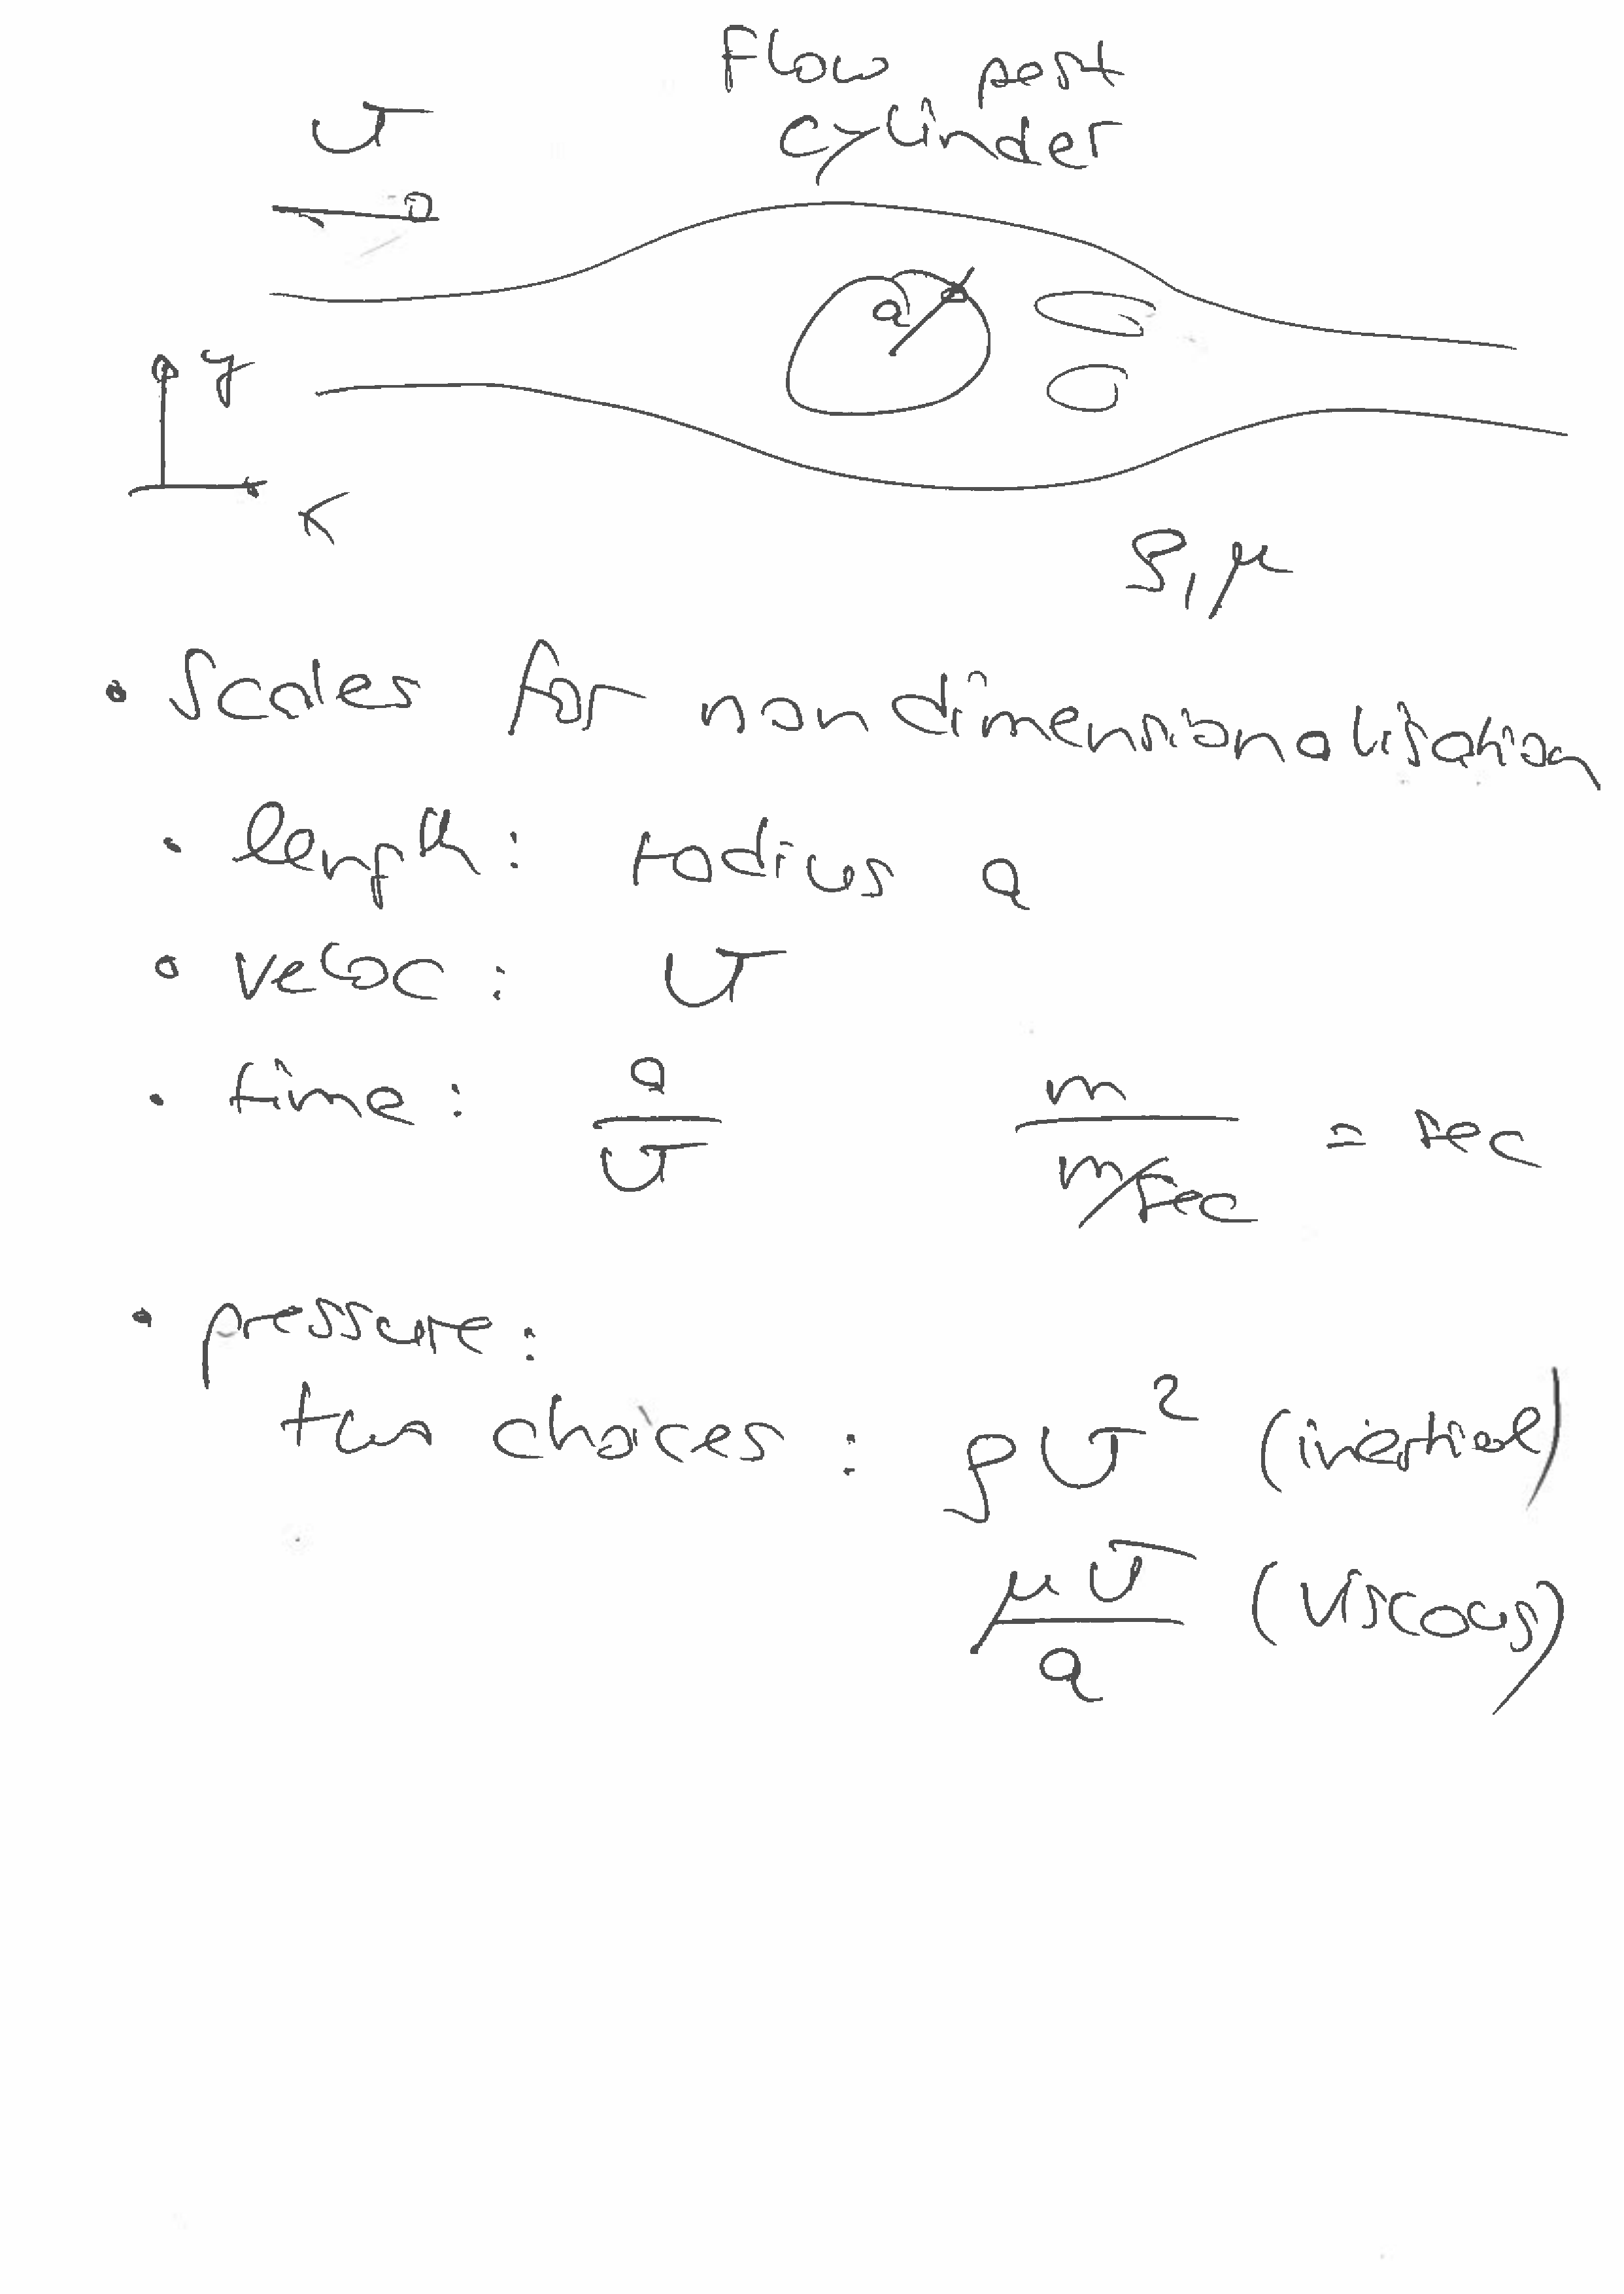 Flow past
cylinder
U
a
y
x
ρ, μ
• Scales for nondimensionalisation
• length: radius a
• veloc: U
• time: a/U m/(m/sec) = sec
• pressure:
two choices: ρU² (inertial)
μU/a (viscous)